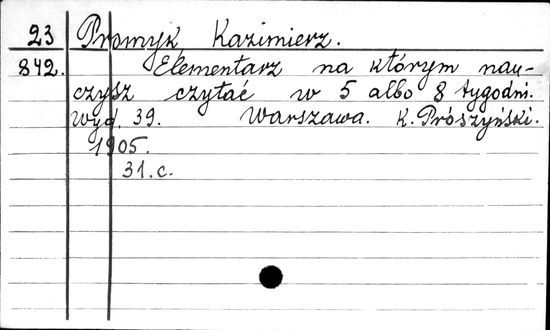 23 Promyk Kazimierz.
842. Elementarz na którym nau-
czysz czytać w 5 albo 8 tygodni.
wyd. 39. Warszawa. K. Prószyński.
1905.
31.c.